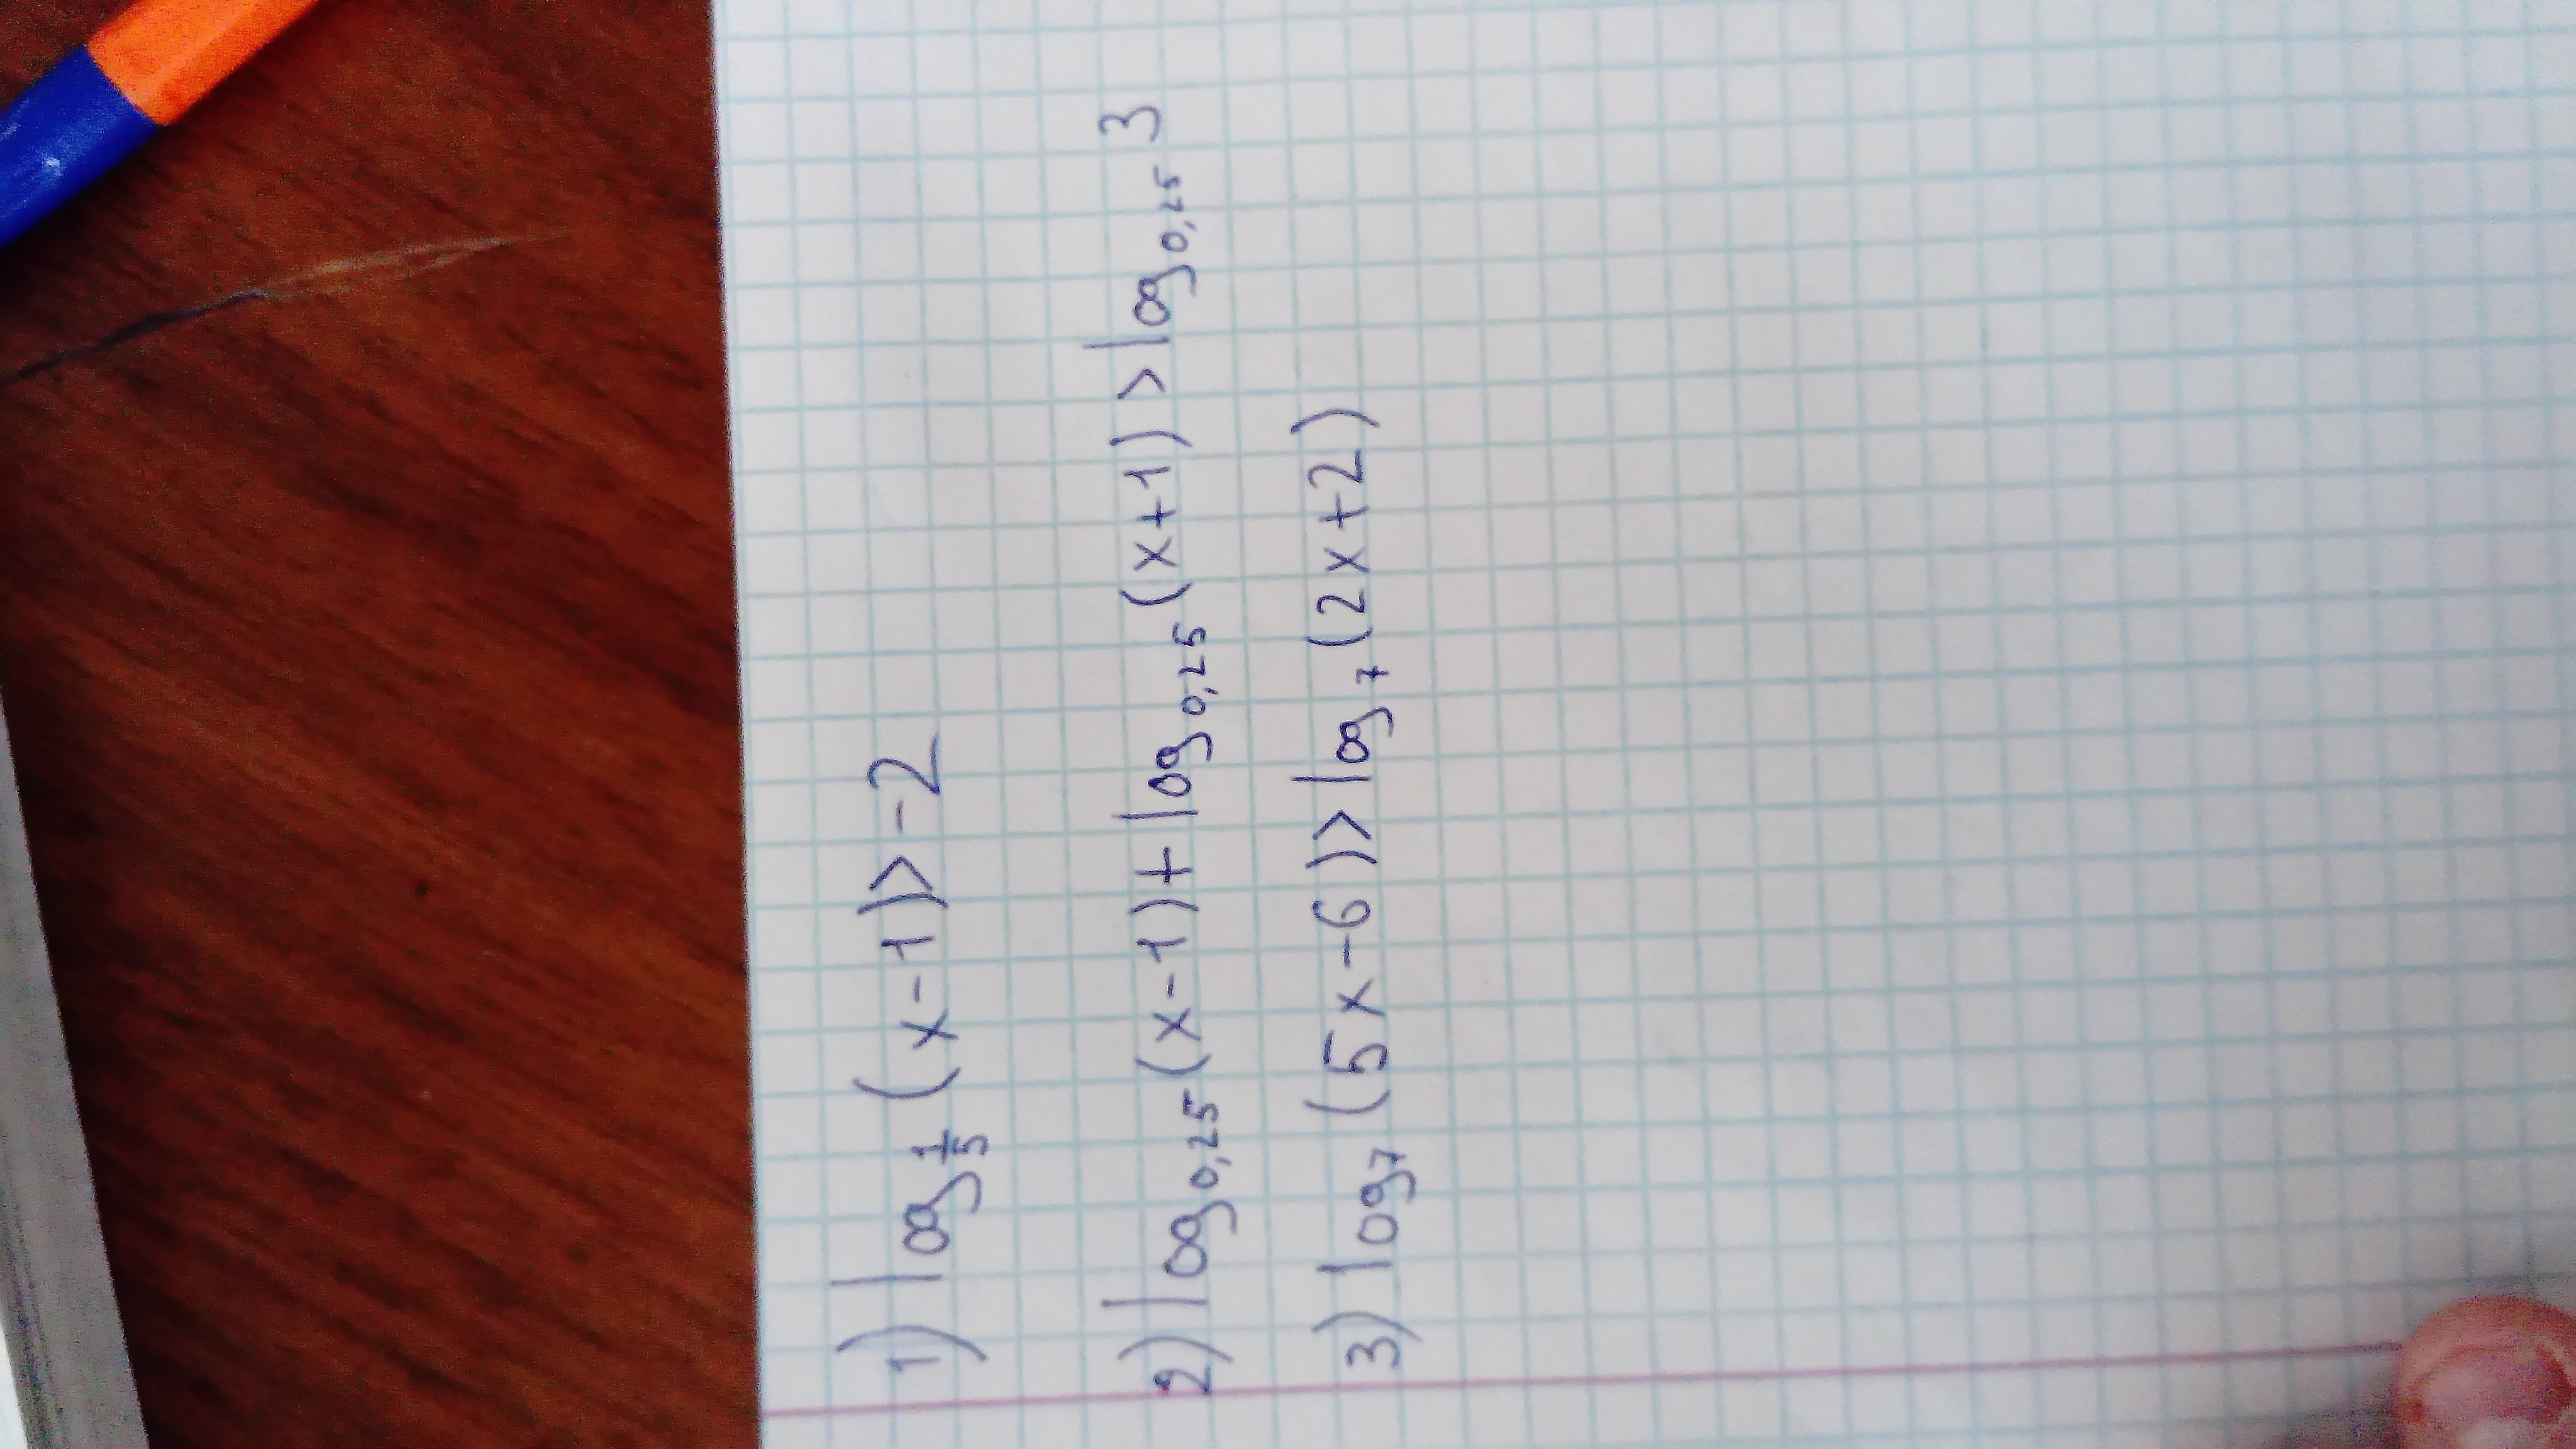 1) log 1/5 (x-1)>-2
2) log 0,25 (x-1)+log 0,25 (x+1)>log 0,25 3
3) log 7 (5x-6)>log 7 (2x+2)